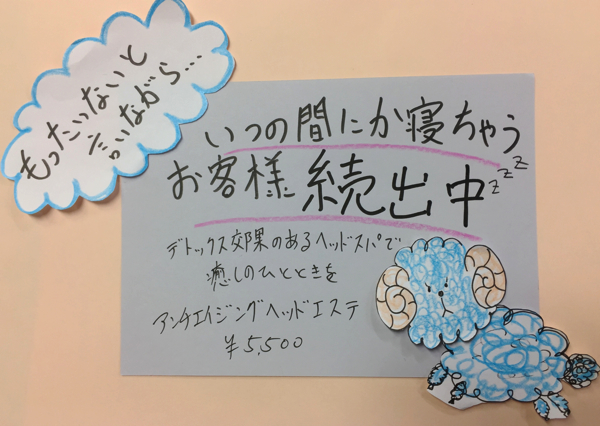 もったいないと
言いながら…
いつの間にか寝ちゃう
お客様続出中zzz
デトックス効果のあるヘッドスパで
癒しのひとときを
アンチエイジングヘッドエステ
¥5,500